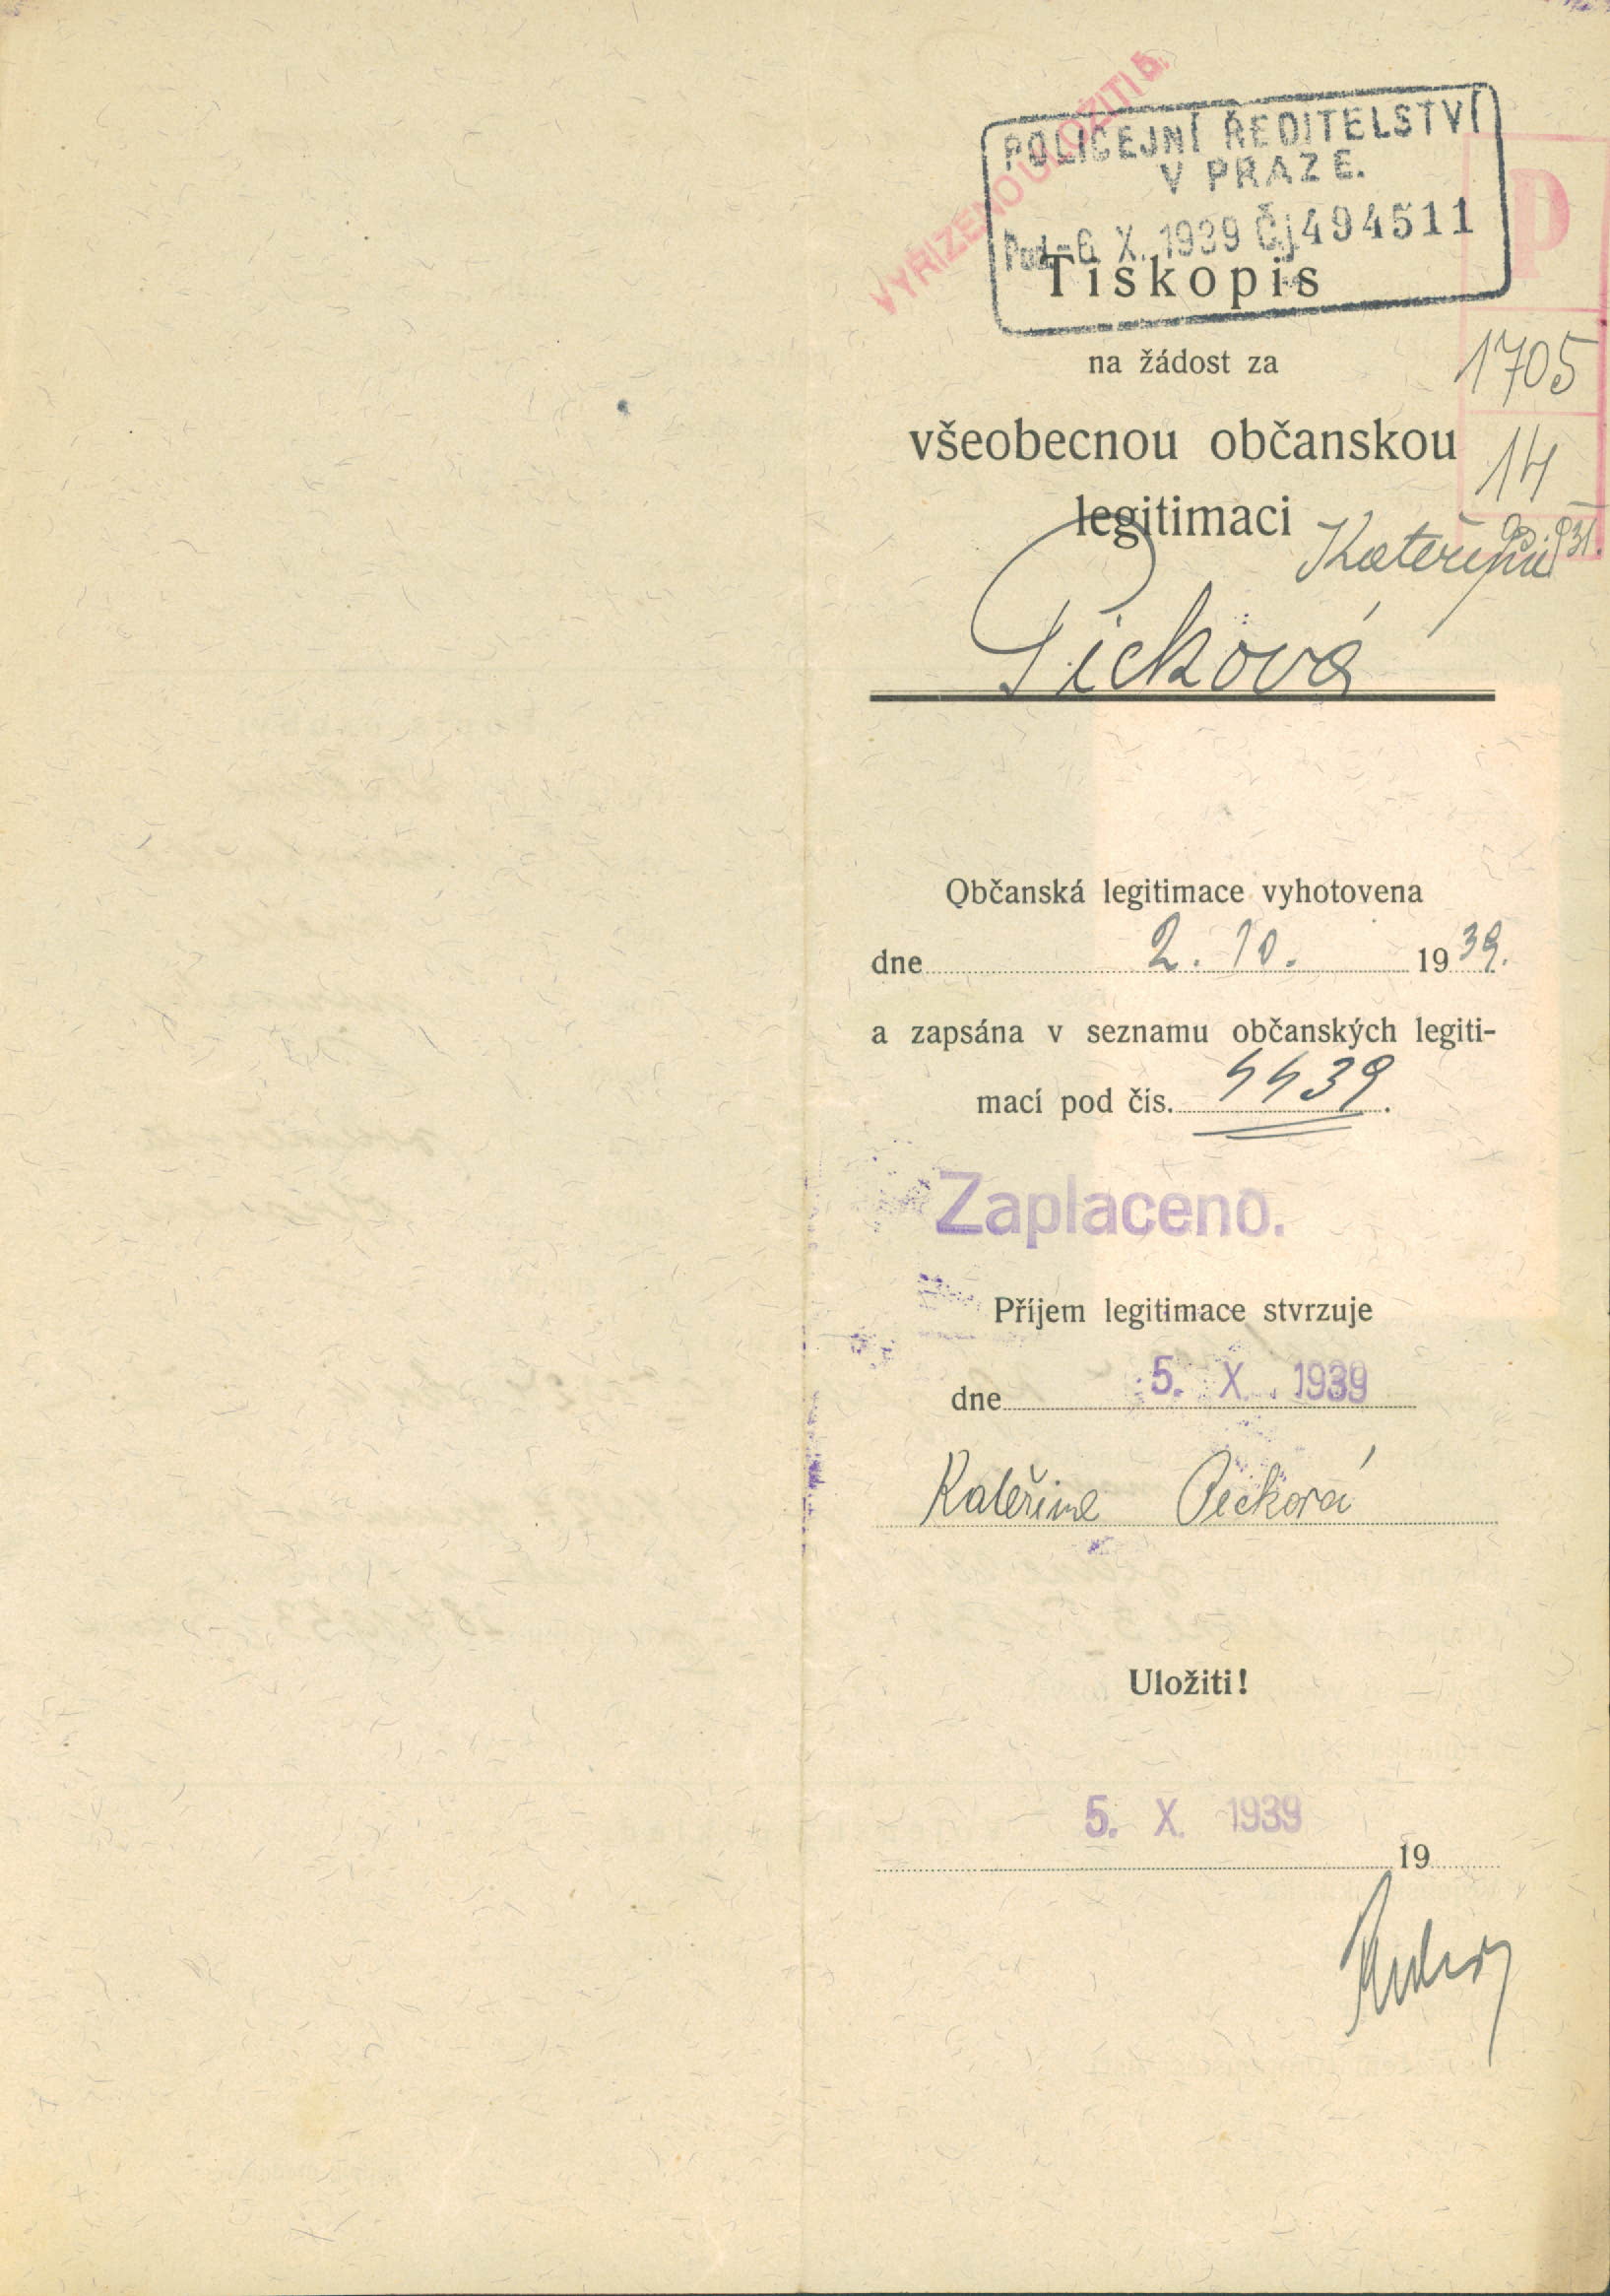 VYŘÍZENO ULOŽITI 5.
POLICEJNÍ ŘEDITELSTVÍ
V PRAZE.
Pod. -6. X. 1939 Čj 494511
P
Tiskopis
na žádost za
1705
všeobecnou občanskou
14
legitimaci
Kateřina
Picková
Občanská legitimace vyhotovena
dne 2. 10. 1939.
a zapsána v seznamu občanských legiti-
mací pod čís. 4439.
Zaplaceno.
Příjem legitimace stvrzuje
dne 5. X. 1939
Kateřina Picková
Uložiti!
5. X. 1939
19